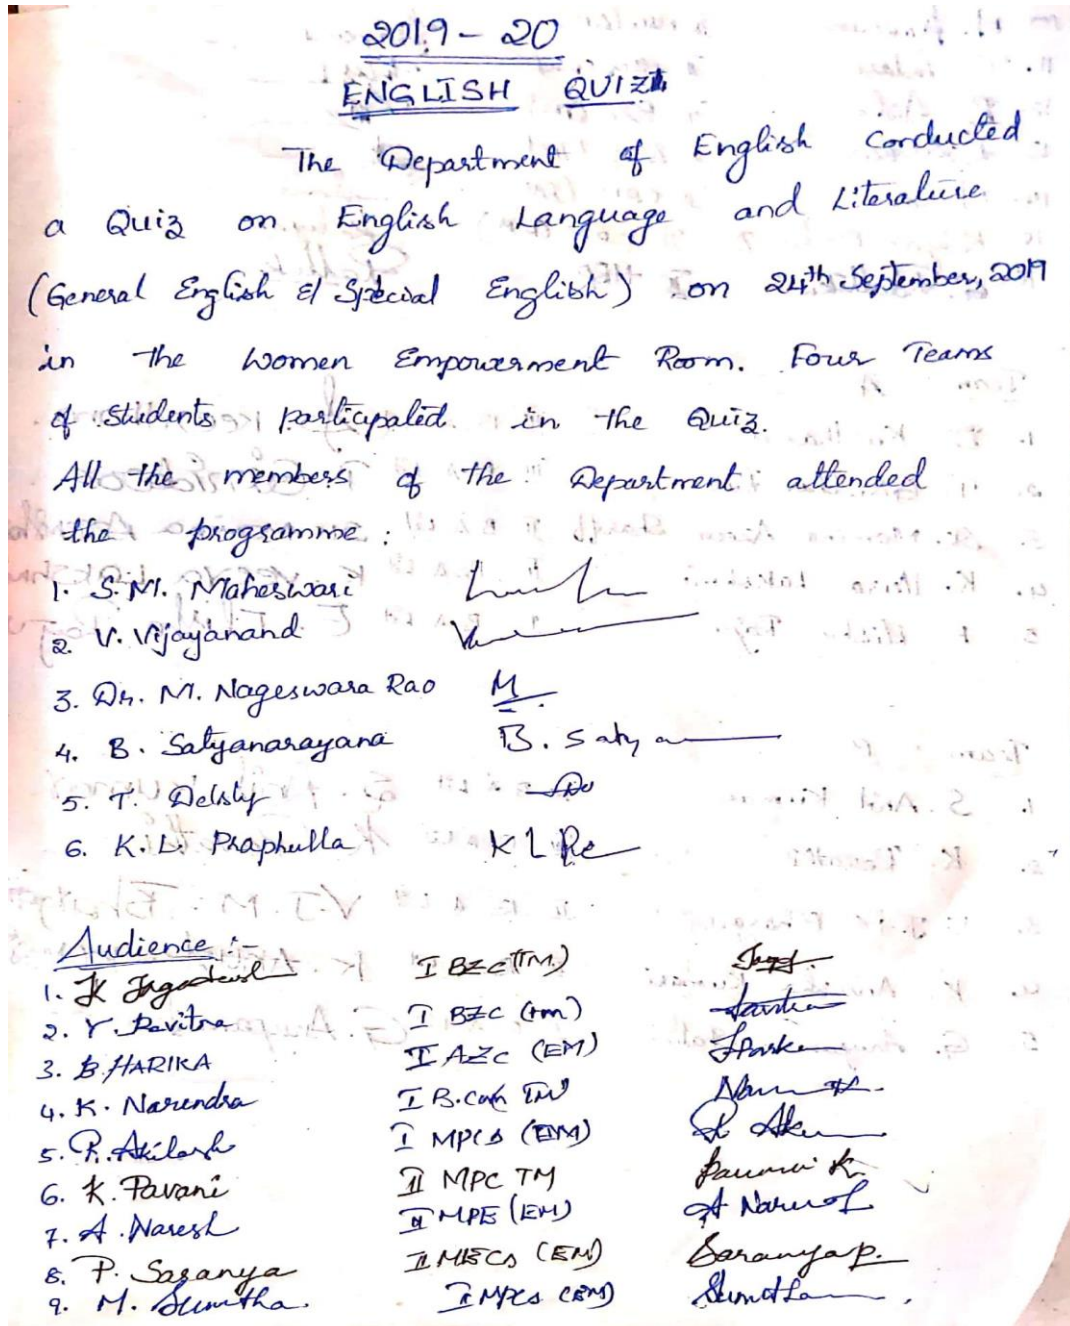 2019 - 20
ENGLISH QUIZ
The Department of English Conducted
a Quiz on English Language and Literature
(General English & Special English) on 24th September, 2019
in the Women Empowerment Room. Four Teams
of Students participated in the Quiz.
All the members of the Department attended
the programme :
1. S.M. Maheswari
2. V. Vijayanand
3. Dr. M. Nageswara Rao M
4. B. Satyanarayana B. Satya
5. T. Delsly
6. K.L. Praphulla K L Pr
Audience :-
1. K Jagadeesh I BZC (TM)
2. Y. Pavitra I BZC (tm)
3. B. HARIKA II AZC (EM)
4. K. Narendra I B.com TM
5. P. Akilash I MPCs (EM)
6. K. Pavani II MPC TM Pavani K.
7. A. Naresh II MPE (EM) A Naresh
8. P. Saranya II MECs (EM) Saranya p.
9. M. Sunitha. I MPCs (EM) Sunitha